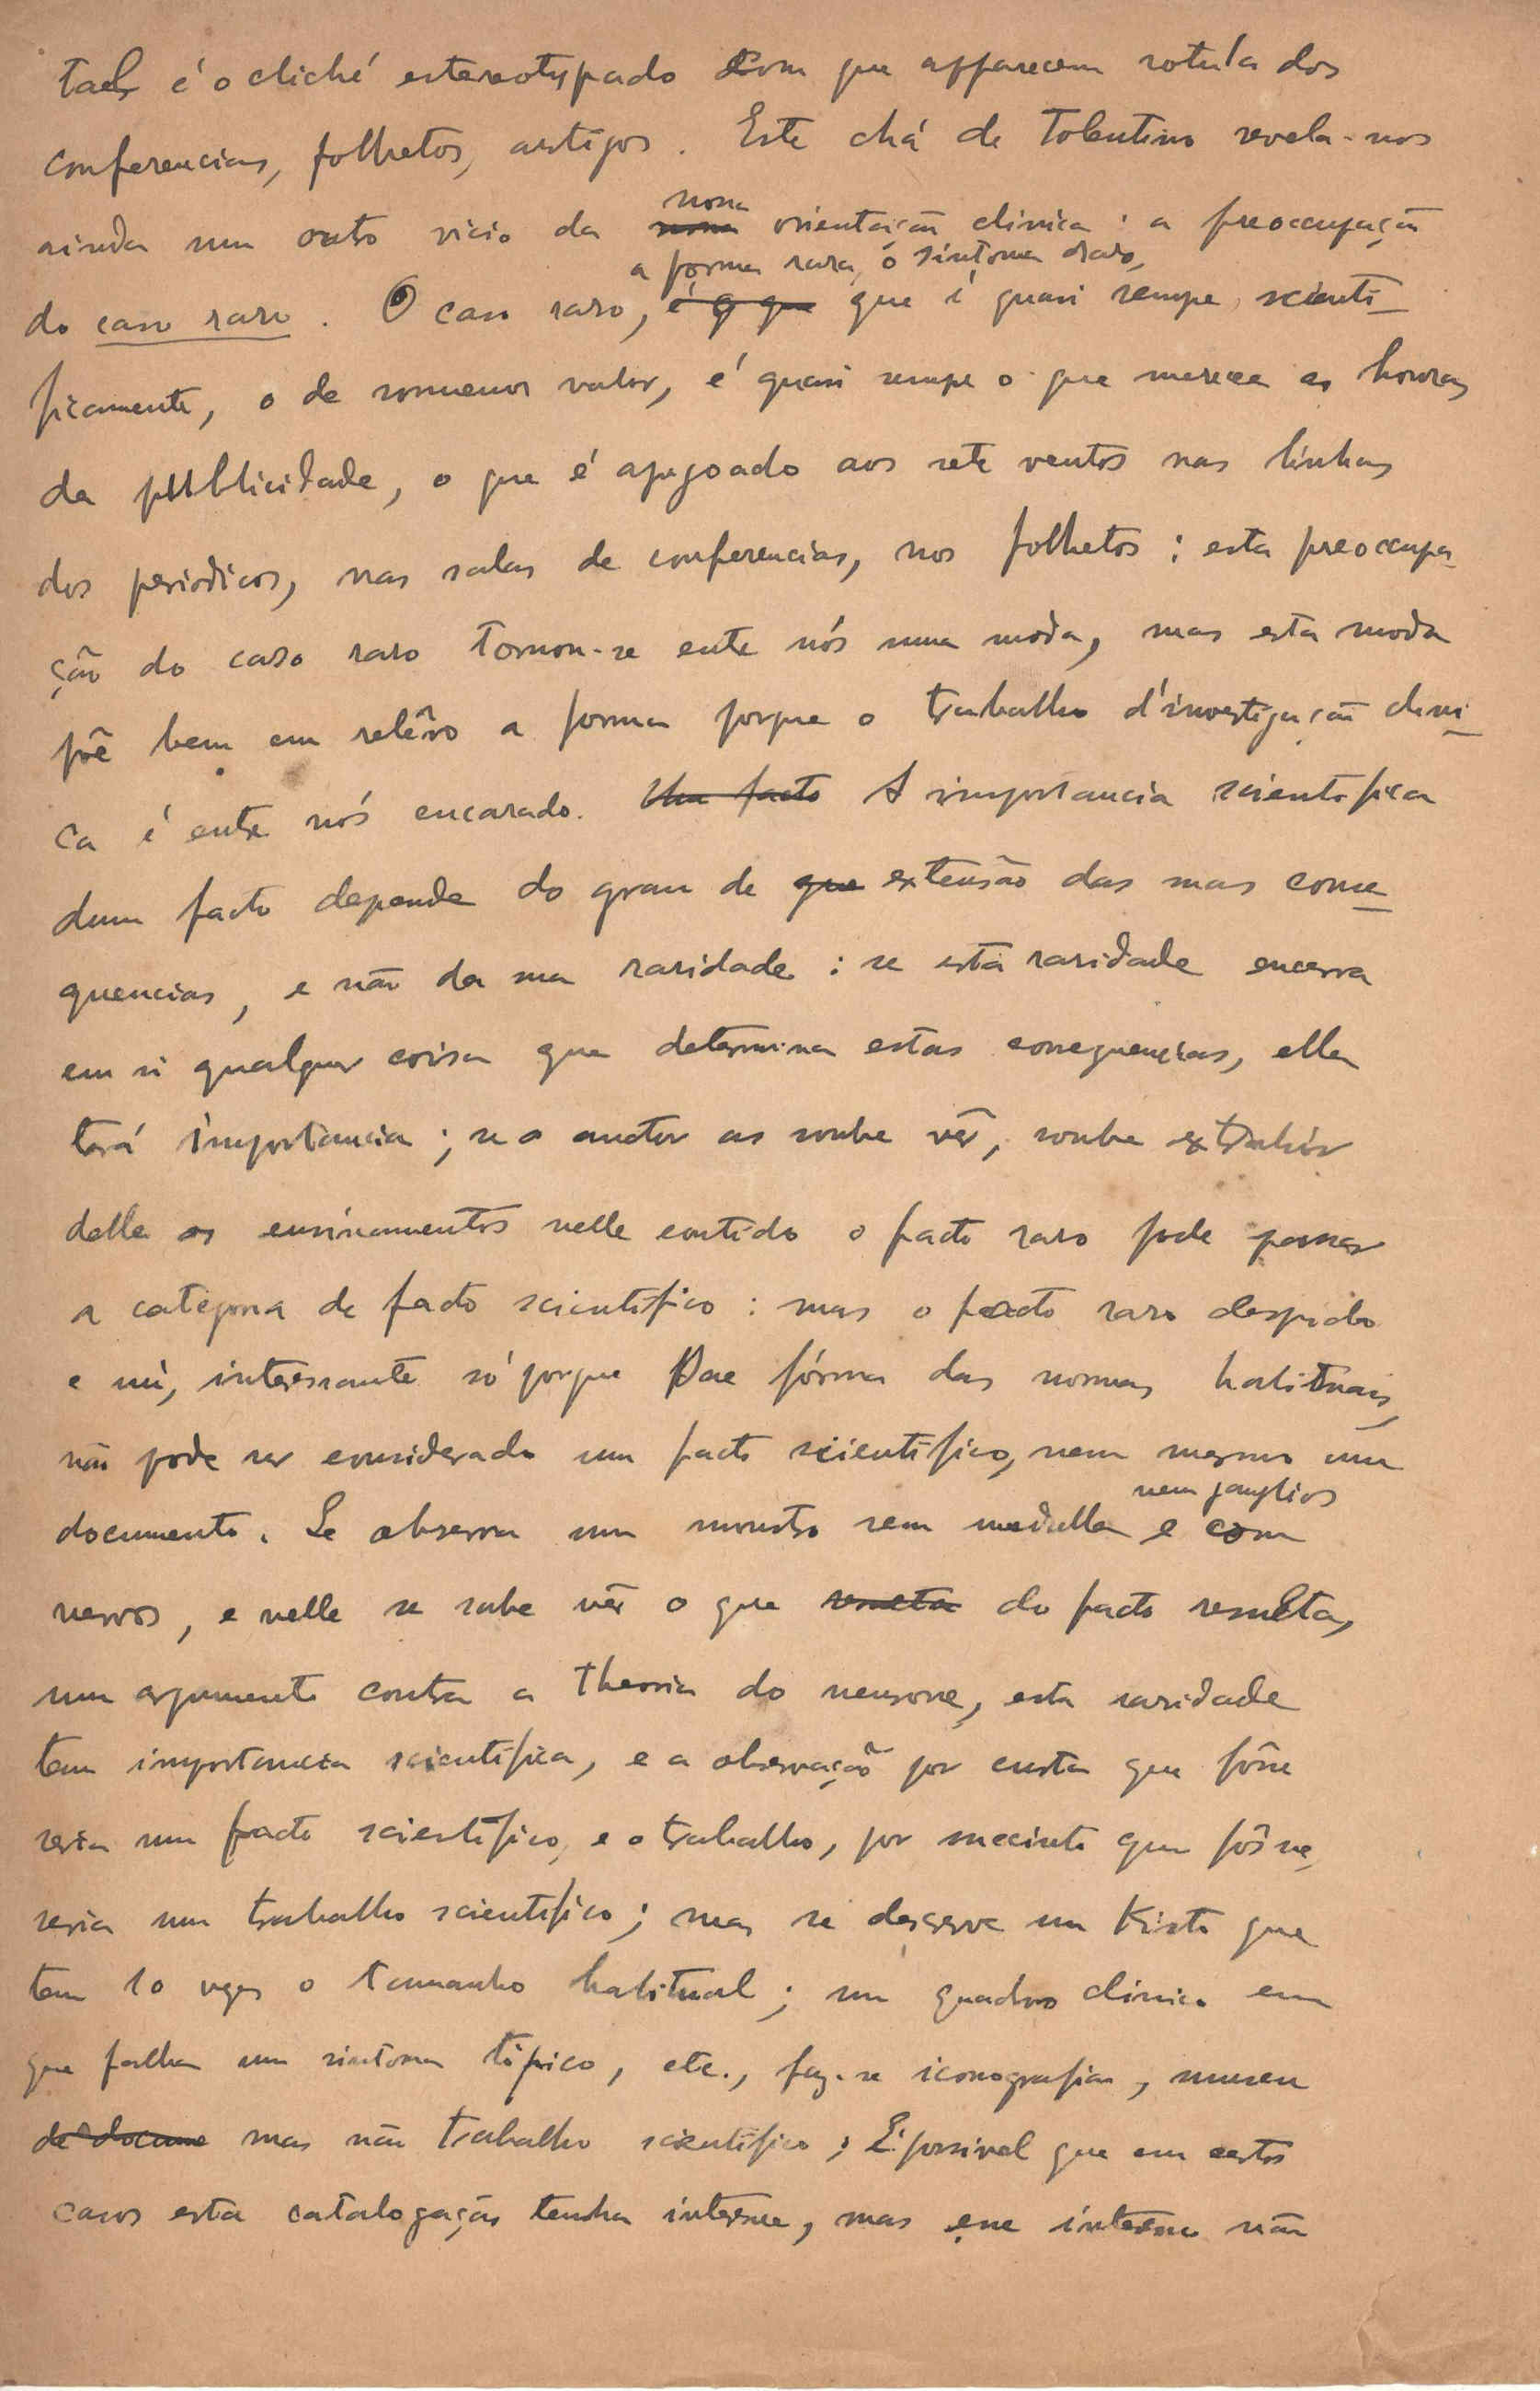 tal é o cliché estereotypado com que apparecem rotulados
conferencias, folhetos, artigos. Este chá de Tolentino revela-nos
nossa
ainda um outro vicio da nossa orientação clinica : a preoccupação
a forma rara, o sintoma raro,
do caso raro. O caso raro, é o que que é quasi sempre, scienti-
ficamente, o de somenos valor, é quasi sempre o que merece as honras
da publicidade, o que é apregoado aos sete ventos nas linhas
dos periodicos, nas salas de conferencias, nos folhetos ; esta preoccupa-
ção do caso raro tornou-se entre nós uma moda, mas esta moda
põe bem em relêvo a forma porque o trabalho d'investigação clini-
ca é entre nós encarado. Um facto A importancia scientifica
dum facto depende do grau de que extensão das suas conse-
quencias, e não da sua raridade : se esta raridade encerra
em si qualquer coisa que determina estas consequencias, ella
terá importancia ; se o auctor as soube vêr, soube extrahir
delle os ensinamentos nelle contido o facto raro pode passar
a categoria de facto scientifico : mas o facto raro despido
e nú, interessante só porque sae fóra das normas habituais,
não pode ser considerado um facto scientifico, nem mesmo um
nem ganglios
documento. Se observa um monstro sem medulla e com
nervos, e nelle se sabe vêr o que resulta do facto resulta,
um argumento contra a theoria do neurone, esta raridade
tem importancia scientifica, e a observação por curta que fôsse
seria um facto scientifico, e o trabalho, por succinto que fôsse,
seria um trabalho scientifico ; mas se descreve um Kisto que
tem 10 vezes o tamanho habitual ; um quadro clinico em
que falha um sintoma tipico, etc., faz-se iconografia, museu
de docume mas não trabalho scientifico ; É possivel que em certos
casos esta catalogação tenha interesse, mas esse interesse não